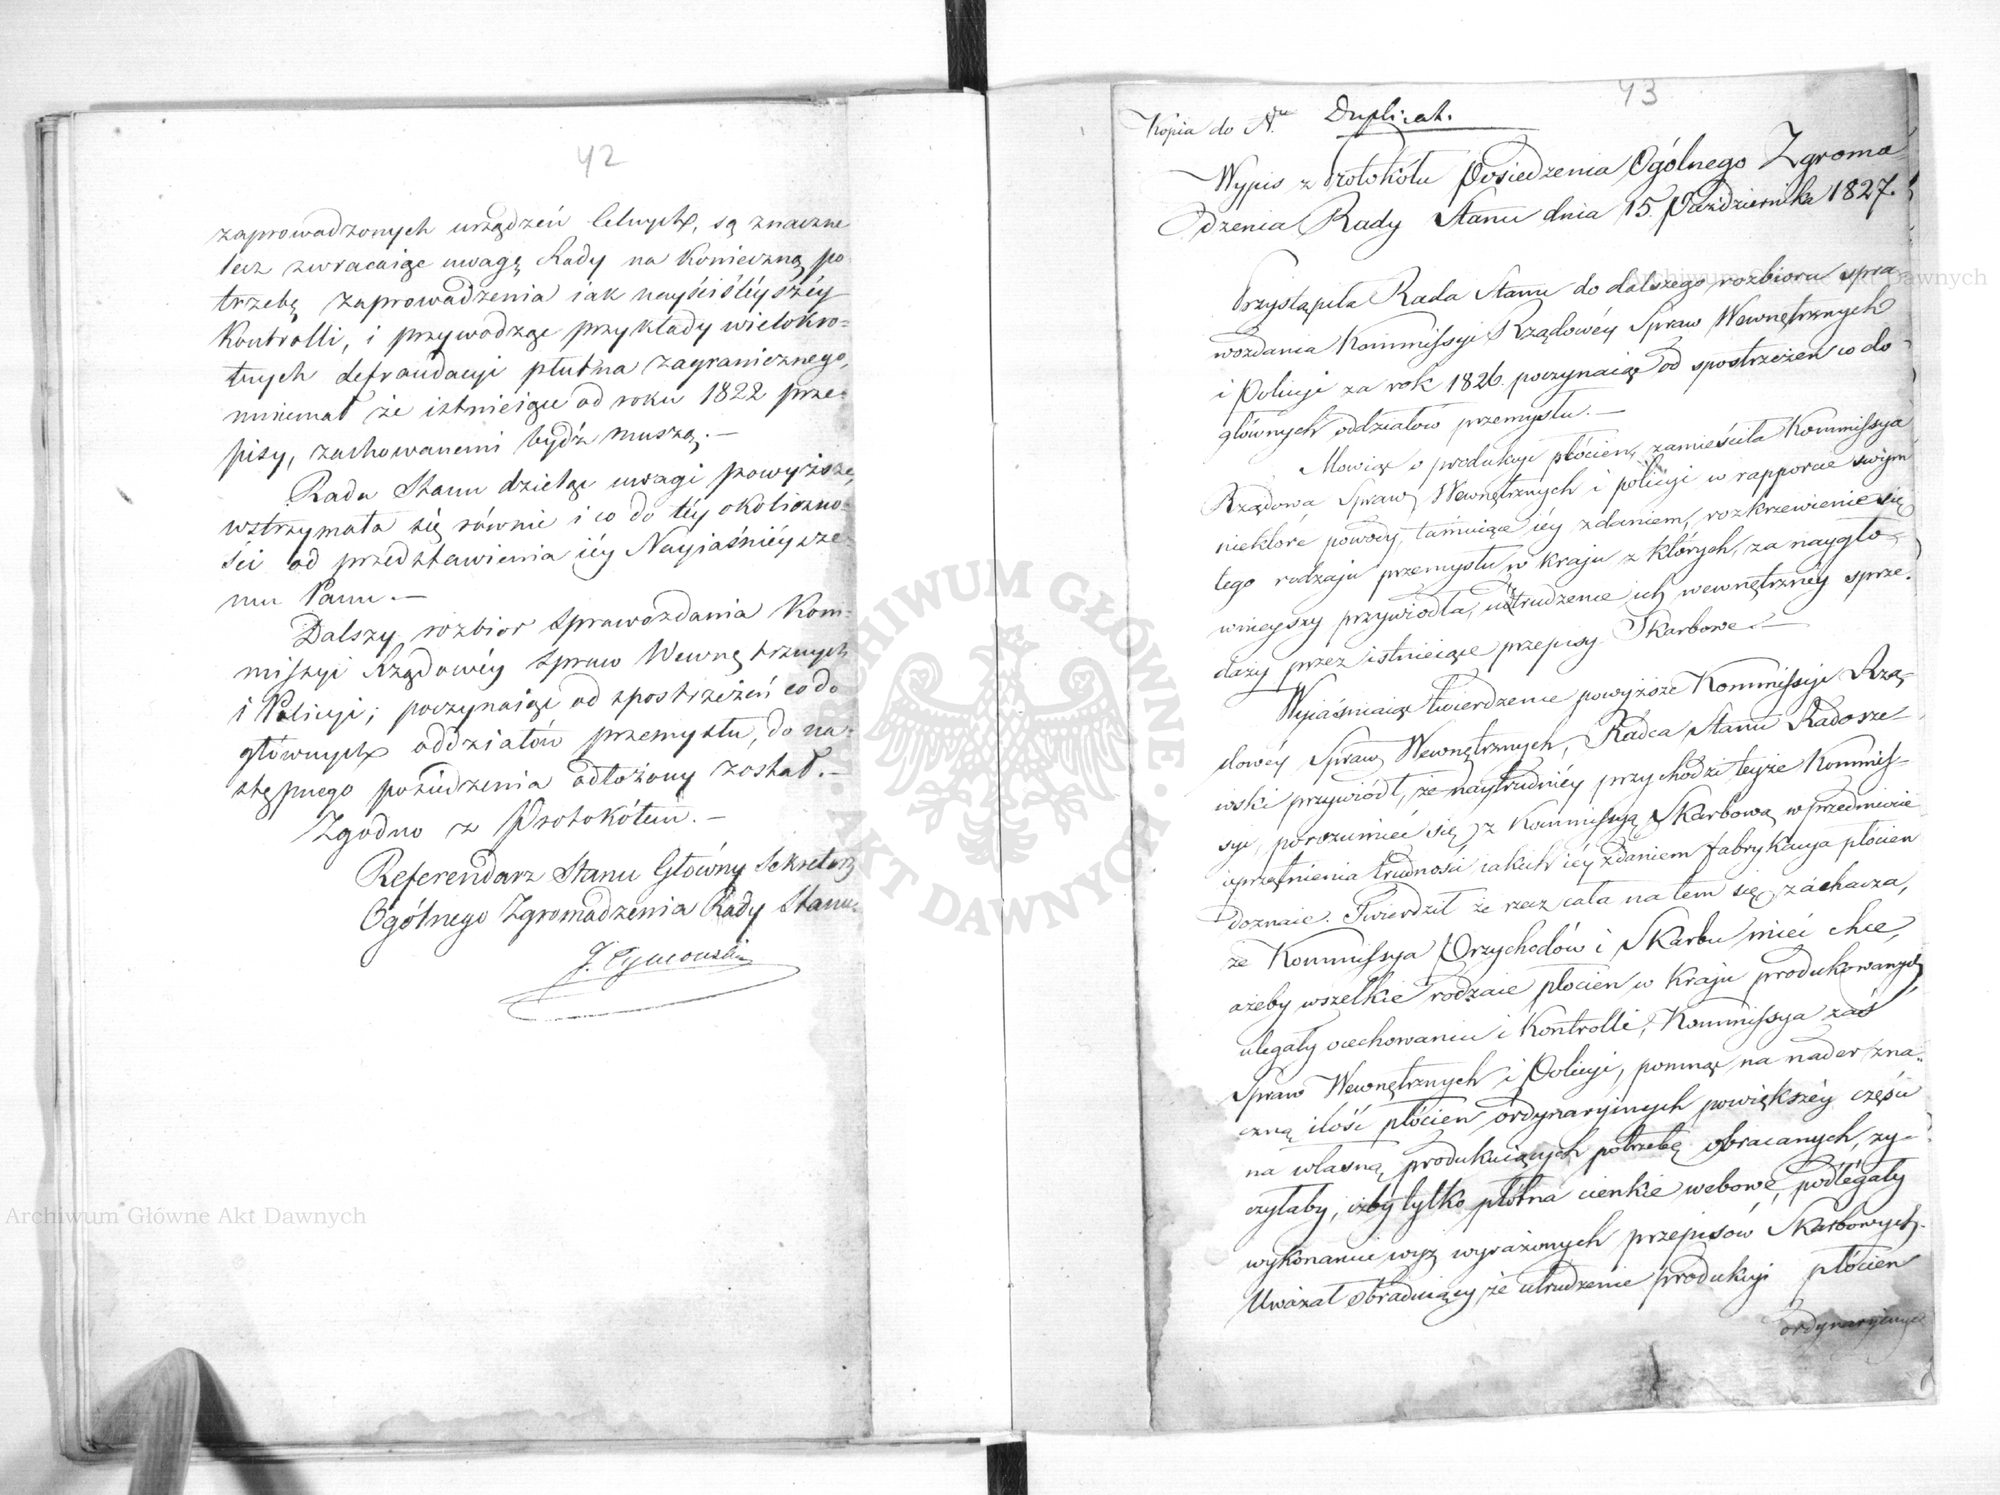 42
zaprowadzonych urządzeń Celnych, są znaczne
lecz zwracaiąc uwagę Rady na konieczną po
trzebę zaprowadzenia iak nayściśléyszéy
Kontrolli, i przywodząc przykłady wielokro-
tnych defraudacyi płutna zagranicznego,
mniemał że istnieiące od roku 1822 prze-
pisy, zachowanemi bydź muszą.—
Rada Stanu dzieląc uwagi powyższe,
wstrzymała się równie i co do téy okoliczno-
ści od przedstawienia iéy Nayiaśniéysze-
mu Panu.—
Dalszy rozbior sprawozdania Kom-
missyi Rządowéy Spraw Wewnętrznych
i Policyi; poczynaiąc od spostrzeżeń co do
głównych oddziałów przemysłu, do na-
stępnego posiedzenia odłożony został.—
Zgodno z Protokółem.—
Referendarz Stanu Główny Sekretarz
Ogólnego Zgromadzenia Rady Stanu
J. Tymowski
43
Kopia do N. Duplicat.
Wypis z Protokółu Posiedzenia Ogólnego Zgroma
dzenia Rady Stanu dnia 15. Października 1827.
Przystąpiła Rada Stanu do dalszego rozbioru spra
wozdania Kommissyi Rządowéy Spraw Wewnętrznych
i Policyi za rok 1826. poczynaiąc od spostrzeżeń co do
głównych oddziałow przemysłu.—
Mowiąc o produkcyi płócien, zamieściła Kommissya
Rządowa Spraw Wewnętrznych i policyi w rapporcie swym
niektóré powody, tamuiące iéy zdaniem, rozkrzewienie się
tego rodzaju przemysłu w kraju z których, za naygłó-
wnieyszy przywiodła, utrudzenie ich wewnętrznéy sprze-
daży przez istnieiące przepisy Skarbowe.—
Wyiaśniaiąc twierdzenie powyższe Kommissyi Rzą-
dowéy Spraw Wewnętrznych, Radca Stanu Radosze-
wski przywiódł, że naytrudniéy przychodzi teyże Kommis-
syi, porozumieć się z Kommissyą Skarbową w przedmiocie
uprzątnienia trudności iakich iéy zdaniem fabrykacya płócien
doznaie. Twierdził że rzecz cała na tem się zahacza,
że Kommissya Przychodów i Skarbu mieć chce,
ażeby wszelkie rodzaie płócien w kraju produkowanych
ulegały cechowaniu i Kontrolli, Kommissya zaś
Spraw Wewnętrznych i Policyi, pomnąc na nader zna-
czną ilość płócien ordynaryinych powiększéy części
na własną produkuiących potrzebę obracanych, ży-
czyłaby, iżby tylko płótna cienkie webowe, podlegały
wykonaniu wyż wyrażonych przepisów Skarbowych.
Uważał Obraduiący, że utrudzenie produkcyi płócien
ordynaryinych
Archiwum Główne Akt Dawnych
Archiwum Główne Akt Dawnych
ARCHIWUM GŁÓWNE AKT DAWNYCH